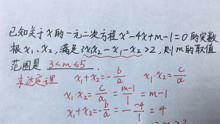 已知关于x的一元二次方程x²-4x+m-1=0的实数
根x₁、x₂,满足3x₁x₂-x₁-x₂>2,则m的取值
范围是 3<m≤5.
韦达定理 x₁+x₂=-b/a x₁·x₂=c/a
x₁·x₂=c/a=(m-1)/1=m-1
x₁+x₂=-b/a=-(-4)/1=4